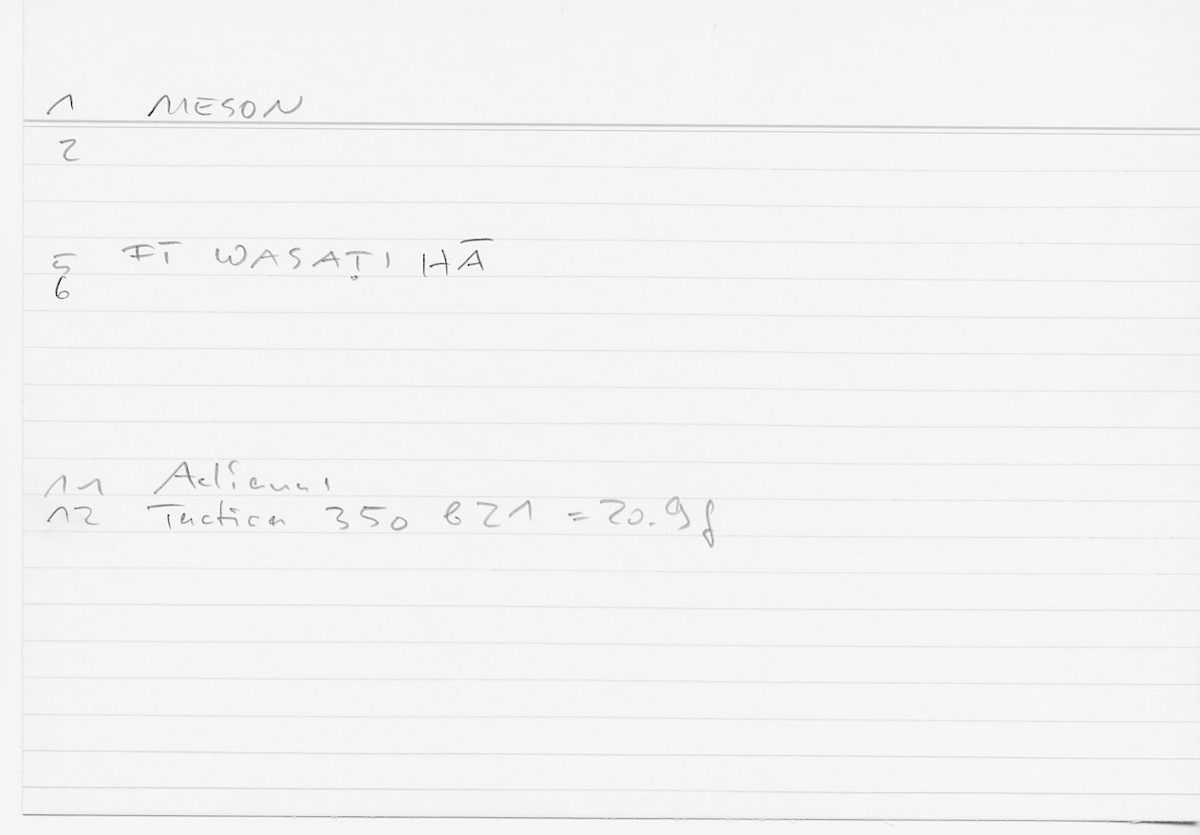 1 MESON
2
5 FĪ WASAṬI HĀ
6
11 Aelianus
12 Tactica 350 621 = 20.9f